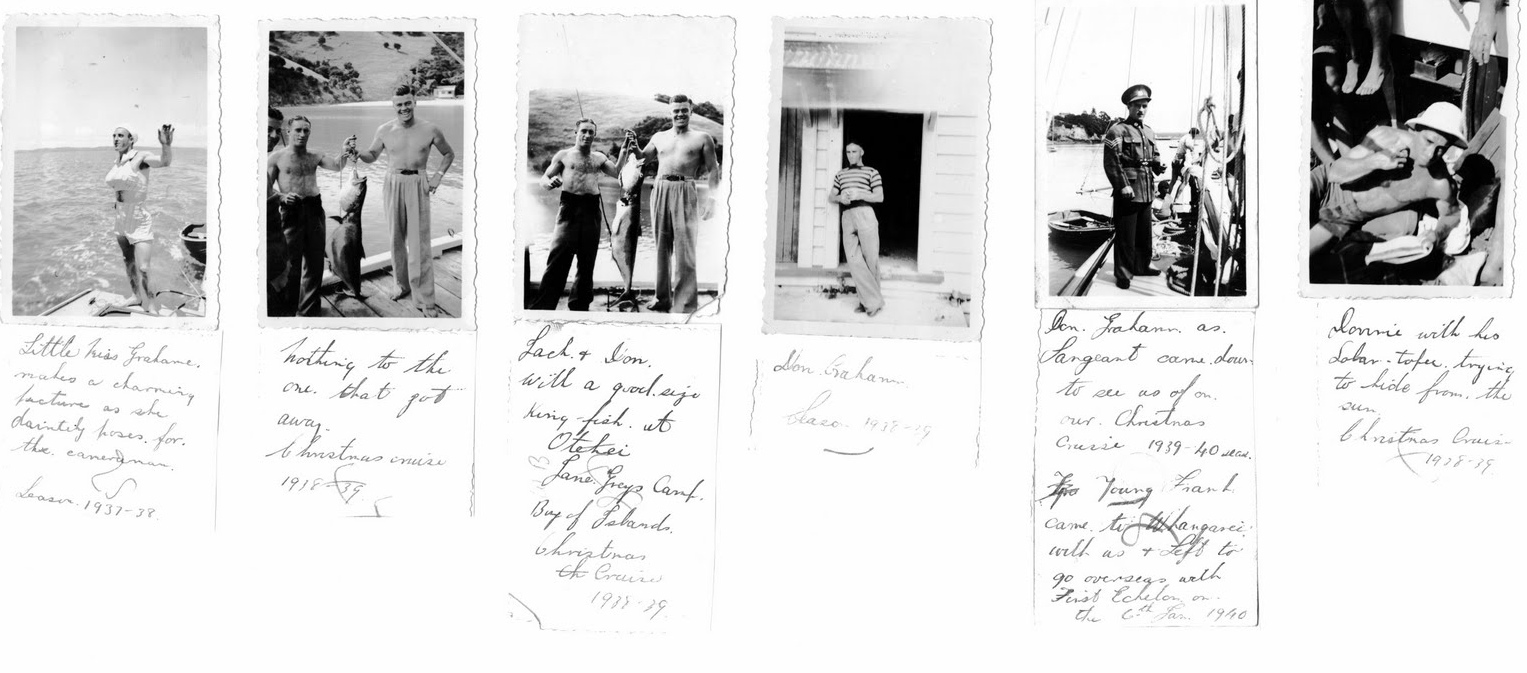 Little Miss Grahame.
makes a charming
picture as she
daintely poses. for.
the. cameraman.
Season. 1937-38.
Nothing to the
one. that got
away.
Christmas cruise
1938-39
Jack. & Don.
With a good. size
King fish. at
Otehei
Zane. Greys Camp.
Bay of Islands.
Christmas
Ch Cruise
1938-39.
Don. Grahame.
Season. 1938-39
Don. Grahame. as.
Sargeant came. down
to see us of on.
our. Christmas
Cruise 1939-40
Young Frank
came. to Whangarei.
with us & Left to
go overseas with
First Echelon on.
the 6th Jan. 1940
Donnie with his
Sobar-tofee. trying
to hide from. the
sun.
Christmas Cruise
1938-39.